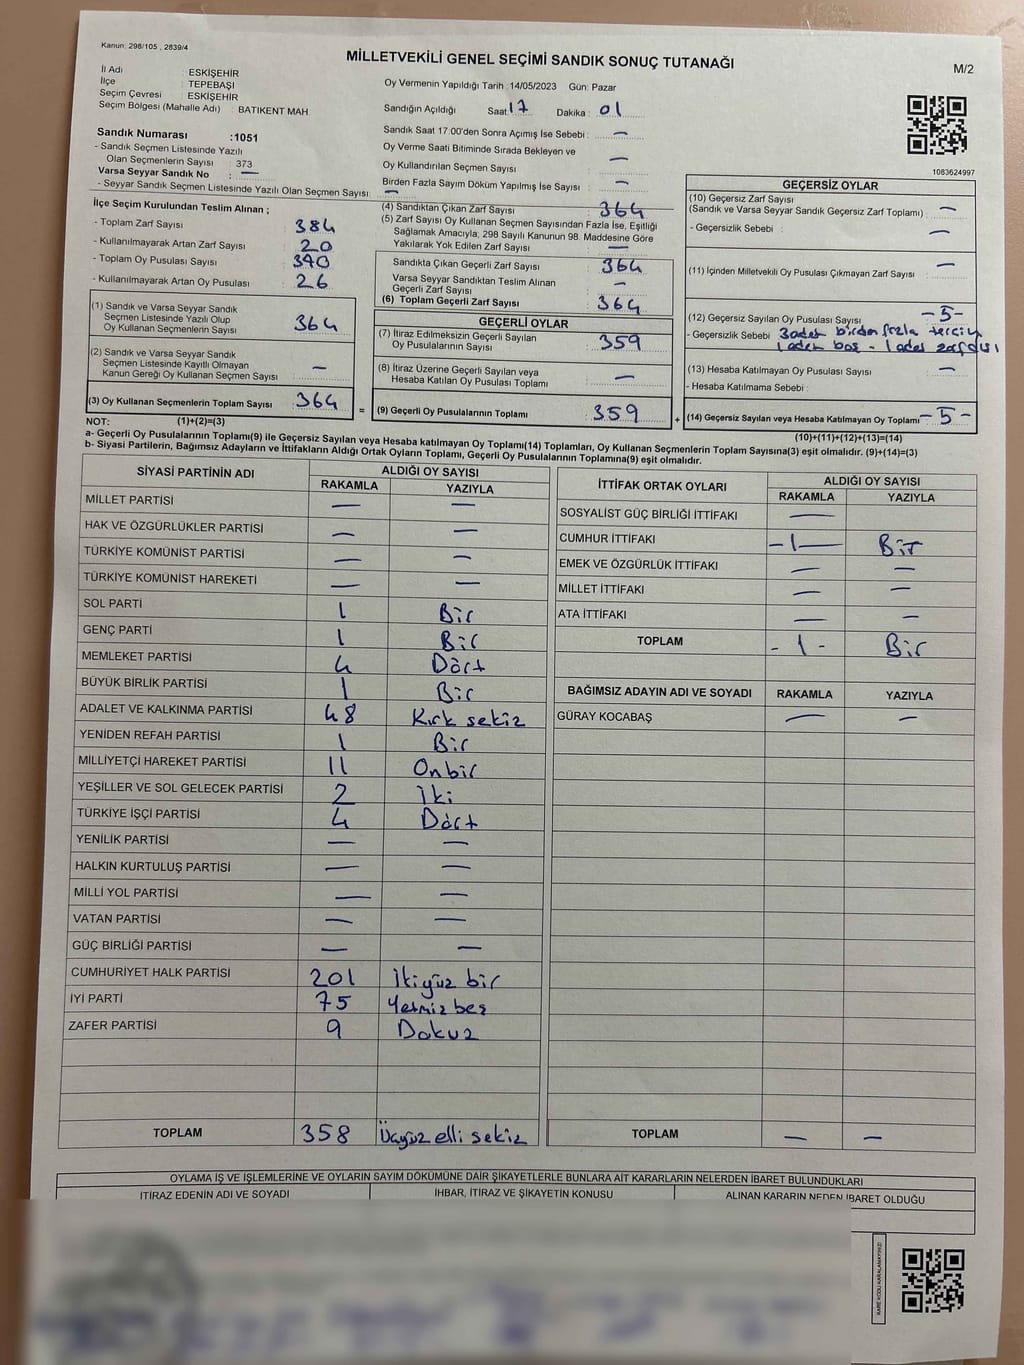 Kanun: 298/105 , 2839/4
MİLLETVEKİLİ GENEL SEÇİMİ SANDIK SONUÇ TUTANAĞI
M/2
İl Adı : ESKİŞEHİR
İlçe : TEPEBAŞI
Seçim Çevresi : ESKİŞEHİR
Seçim Bölgesi (Mahalle Adı) : BATIKENT MAH.
Sandık Numarası :1051
- Sandık Seçmen Listesinde Yazılı
Olan Seçmenlerin Sayısı : 373
Varsa Seyyar Sandık No : —
- Seyyar Sandık Seçmen Listesinde Yazılı Olan Seçmen Sayısı: —
Oy Vermenin Yapıldığı Tarih :14/05/2023 Gün: Pazar
Sandığın Açıldığı Saat: 17 Dakika : 01
Sandık Saat 17.00'den Sonra Açılmış İse Sebebi : —
Oy Verme Saati Bitiminde Sırada Bekleyen ve
Oy Kullandırılan Seçmen Sayısı : —
Birden Fazla Sayım Döküm Yapılmış İse Sayısı : —
1083624997
İlçe Seçim Kurulundan Teslim Alınan ;
- Toplam Zarf Sayısı : 384
- Kullanılmayarak Artan Zarf Sayısı : 20
- Toplam Oy Pusulası Sayısı : 390
- Kullanılmayarak Artan Oy Pusulası : 26
(1) Sandık ve Varsa Seyyar Sandık
Seçmen Listesinde Yazılı Olup
Oy Kullanan Seçmenlerin Sayısı : 364
(2) Sandık ve Varsa Seyyar Sandık
Seçmen Listesinde Kayıtlı Olmayan
Kanun Gereği Oy Kullanan Seçmen Sayısı : —
(3) Oy Kullanan Seçmenlerin Toplam Sayısı : 364
(1)+(2)=(3)
(4) Sandıktan Çıkan Zarf Sayısı : 364
(5) Zarf Sayısı Oy Kullanan Seçmen Sayısından Fazla İse, Eşitliği
Sağlamak Amacıyla; 298 Sayılı Kanunun 98. Maddesine Göre
Yakılarak Yok Edilen Zarf Sayısı : —
Sandıkta Çıkan Geçerli Zarf Sayısı : 364
Varsa Seyyar Sandıktan Teslim Alınan
Geçerli Zarf Sayısı : —
(6) Toplam Geçerli Zarf Sayısı : 364
GEÇERLİ OYLAR
(7) İtiraz Edilmeksizin Geçerli Sayılan
Oy Pusulalarının Sayısı : 359
(8) İtiraz Üzerine Geçerli Sayılan veya
Hesaba Katılan Oy Pusulası Toplamı : —
= (9) Geçerli Oy Pusulalarının Toplamı : 359 +
GEÇERSİZ OYLAR
(10) Geçersiz Zarf Sayısı
(Sandık ve Varsa Seyyar Sandık Geçersiz Zarf Toplamı) : —
- Geçersizlik Sebebi : —
(11) İçinden Milletvekili Oy Pusulası Çıkmayan Zarf Sayısı : —
(12) Geçersiz Sayılan Oy Pusulası Sayısı : -5-
- Geçersizlik Sebebi : 3 adet birden fazla tercih
1 adet boş - 1 adet zarf dışı
(13) Hesaba Katılmayan Oy Pusulası Sayısı : —
- Hesaba Katılmama Sebebi :
(14) Geçersiz Sayılan veya Hesaba Katılmayan Oy Toplamı : -5-
(10)+(11)+(12)+(13)=(14)
NOT:
a- Geçerli Oy Pusulalarının Toplamı(9) ile Geçersiz Sayılan veya Hesaba katılmayan Oy Toplamı(14) Toplamları, Oy Kullanan Seçmenlerin Toplam Sayısına(3) eşit olmalıdır. (9)+(14)=(3)
b- Siyasi Partilerin, Bağımsız Adayların ve İttifakların Aldığı Ortak Oyların Toplamı, Geçerli Oy Pusulalarının Toplamına(9) eşit olmalıdır.
SİYASİ PARTİNİN ADI ALDIĞI OY SAYISI
RAKAMLA YAZIYLA
MİLLET PARTİSİ — —
HAK VE ÖZGÜRLÜKLER PARTİSİ — —
TÜRKİYE KOMÜNİST PARTİSİ — —
TÜRKİYE KOMÜNİST HAREKETİ — —
SOL PARTİ 1 Bir
GENÇ PARTİ 1 Bir
MEMLEKET PARTİSİ 4 Dört
BÜYÜK BİRLİK PARTİSİ 1 Bir
ADALET VE KALKINMA PARTİSİ 48 Kırk sekiz
YENİDEN REFAH PARTİSİ 1 Bir
MİLLİYETÇİ HAREKET PARTİSİ 11 Onbir
YEŞİLLER VE SOL GELECEK PARTİSİ 2 İki
TÜRKİYE İŞÇİ PARTİSİ 4 Dört
YENİLİK PARTİSİ — —
HALKIN KURTULUŞ PARTİSİ — —
MİLLİ YOL PARTİSİ — —
VATAN PARTİSİ — —
GÜÇ BİRLİĞİ PARTİSİ — —
CUMHURİYET HALK PARTİSİ 201 İkiyüz bir
İYİ PARTİ 75 Yetmiş beş
ZAFER PARTİSİ 9 Dokuz
TOPLAM 358 Üçyüz elli sekiz
İTTİFAK ORTAK OYLARI ALDIĞI OY SAYISI
RAKAMLA YAZIYLA
SOSYALİST GÜÇ BİRLİĞİ İTTİFAKI —
CUMHUR İTTİFAKI -1- Bir
EMEK VE ÖZGÜRLÜK İTTİFAKI — —
MİLLET İTTİFAKI — —
ATA İTTİFAKI — —
TOPLAM -1- Bir
BAĞIMSIZ ADAYIN ADI VE SOYADI RAKAMLA YAZIYLA
GÜRAY KOCABAŞ — —
TOPLAM — —
OYLAMA İŞ VE İŞLEMLERİNE VE OYLARIN SAYIM DÖKÜMÜNE DAİR ŞİKAYETLERLE BUNLARA AİT KARARLARIN NELERDEN İBARET BULUNDUKLARI
İTİRAZ EDENİN ADI VE SOYADI İHBAR, İTİRAZ VE ŞİKAYETİN KONUSU ALINAN KARARIN NEDEN İBARET OLDUĞU
KARE KODU KARALAMAYINIZ!